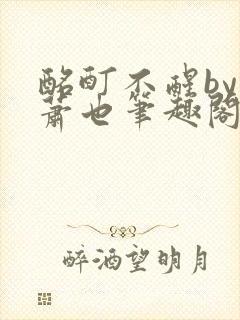 酩酊不醒by
萧也笔趣阁
醉酒望明月